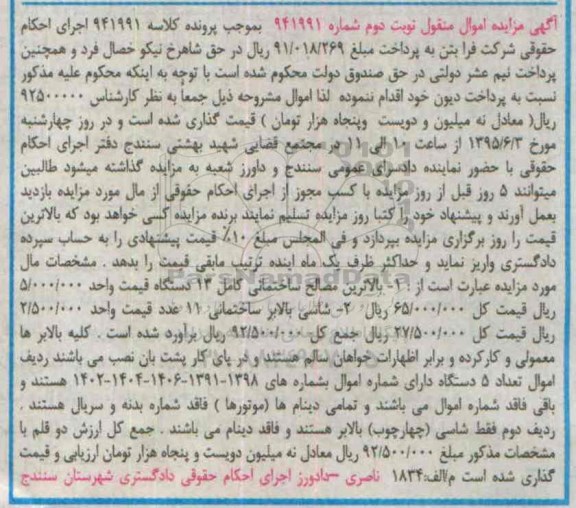 آگهی مزایده اموال منقول نوبت دوم شماره ۹۴۱۹۹۱ بموجب پرونده کلاسه ۹۴۱۹۹۱ اجرای احکام
حقوقی شرکت فرا بتن به پرداخت مبلغ ۹۱/۰۱۸/۲۶۹ ریال در حق شاهرخ نیکو خصال فرد و همچنین
پرداخت نیم عشر دولتی در حق صندوق دولت محکوم شده است با توجه به اینکه محکوم علیه مذکور
نسبت به پرداخت دیون خود اقدام ننموده لذا اموال مشروحه ذیل جمعا به نظر کارشناس ۹۲۵۰۰۰۰۰
ریال( معادل نه میلیون و دویست وپنجاه هزار تومان ) قیمت گذاری شده است و در روز چهارشنبه
مورخ ۱۳۹۵/۶/۳ از ساعت ۱۰ الی ۱۱ در مجتمع قضایی شهید بهشتی سنندج دفتر اجرای احکام
حقوقی با حضور نماینده دادسرای عمومی سنندج و داورز شعبه به مزایده گذاشته میشود طالبین
میتوانند ۵ روز قبل از روز مزایده با کسب مجوز از اجرای احکام حقوقی از مال مورد مزایده بازدید
بعمل آورند و پیشنهاد خود را کتبا روز مزایده تسلیم نمایند برنده مزایده کسی خواهد بود که بالاترین
قیمت را روز برگزاری مزایده بپردازد و فی المجلس مبلغ ۱۰٪ قیمت پیشنهادی را به حساب سپرده
دادگستری واریز نماید و حداکثر ظرف یک ماه اینده ترتیب مابقی قیمت را بدهد . مشخصات مال
مورد مزایده عبارت است از : ۱- بالاترین مصالح ساختمانی کامل ۱۳ دستگاه قیمت واحد ۵/۰۰۰/۰۰۰
ریال قیمت کل ۶۵/۰۰۰/۰۰۰ ریال ۲- شاسی بالابر ساختمانی ۱۱ عدد قیمت واحد ۲/۵۰۰/۰۰۰
ریال قیمت کل ۲۷/۵۰۰/۰۰۰ ریال جمع کل ۹۲/۵۰۰/۰۰۰ ریال برآورد شده است . کلیه بالابر ها
معمولی و کارکرده و برابر اظهارات خواهان سالم هستند و در پای کار پشت بان نصب می باشند ردیف
اموال تعداد ۵ دستگاه دارای شماره اموال بشماره های ۱۳۹۸-۱۳۹۱-۱۴۰۶-۱۴۰۴-۱۴۰۲ هستند و
باقی فاقد شماره اموال می باشند و تمامی دینام ها (موتورها ) فاقد شماره بدنه و سریال هستند .
ردیف دوم فقط شاسی (چهارچوب) بالابر هستند و فاقد دینام می باشند . جمع کل ارزش دو قلم با
مشخصات مذکور مبلغ ۹۲/۵۰۰/۰۰۰ ریال معادل نه میلیون دویست و پنجاه هزار تومان ارزیابی و قیمت
گذاری شده است م/الف:۱۸۳۴ ناصری -دادورز اجرای احکام حقوقی دادگستری شهرستان سنندج
ParsNamadData